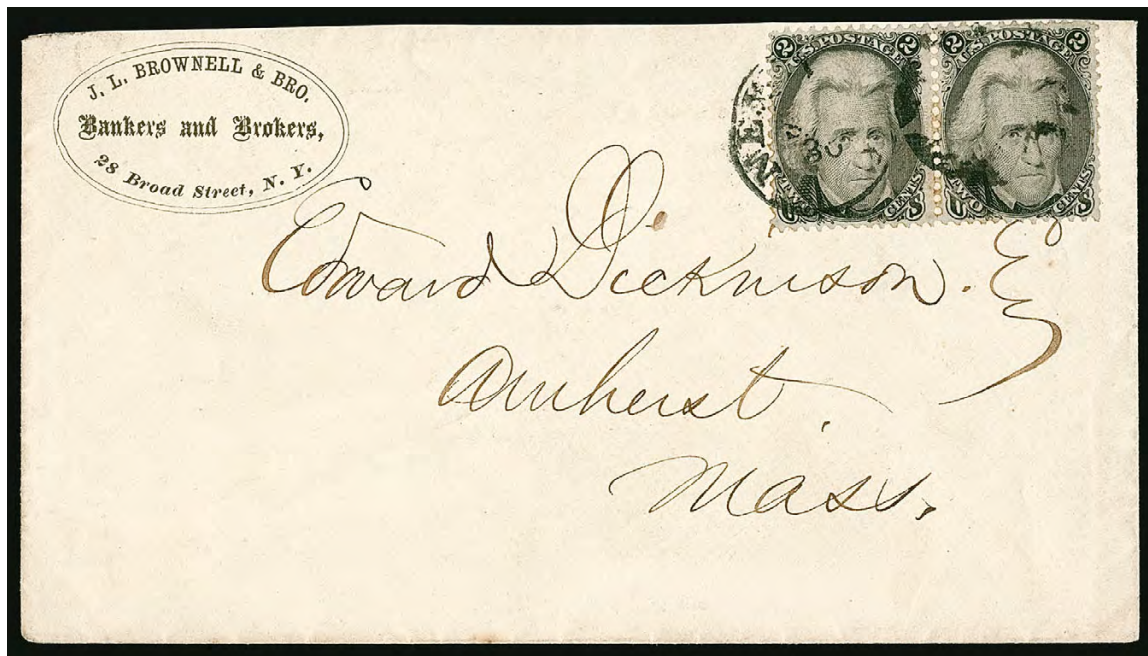 J. L. BROWNELL & BRO.
Bankers and Brokers,
28 Broad Street, N. Y.
2 U.S. POSTAGE 2
TWO CENTS
U S
2 U.S. POSTAGE 2
TWO CENTS
U S
NEW
Edward Dickinson. Esq
Amherst,
Mass.